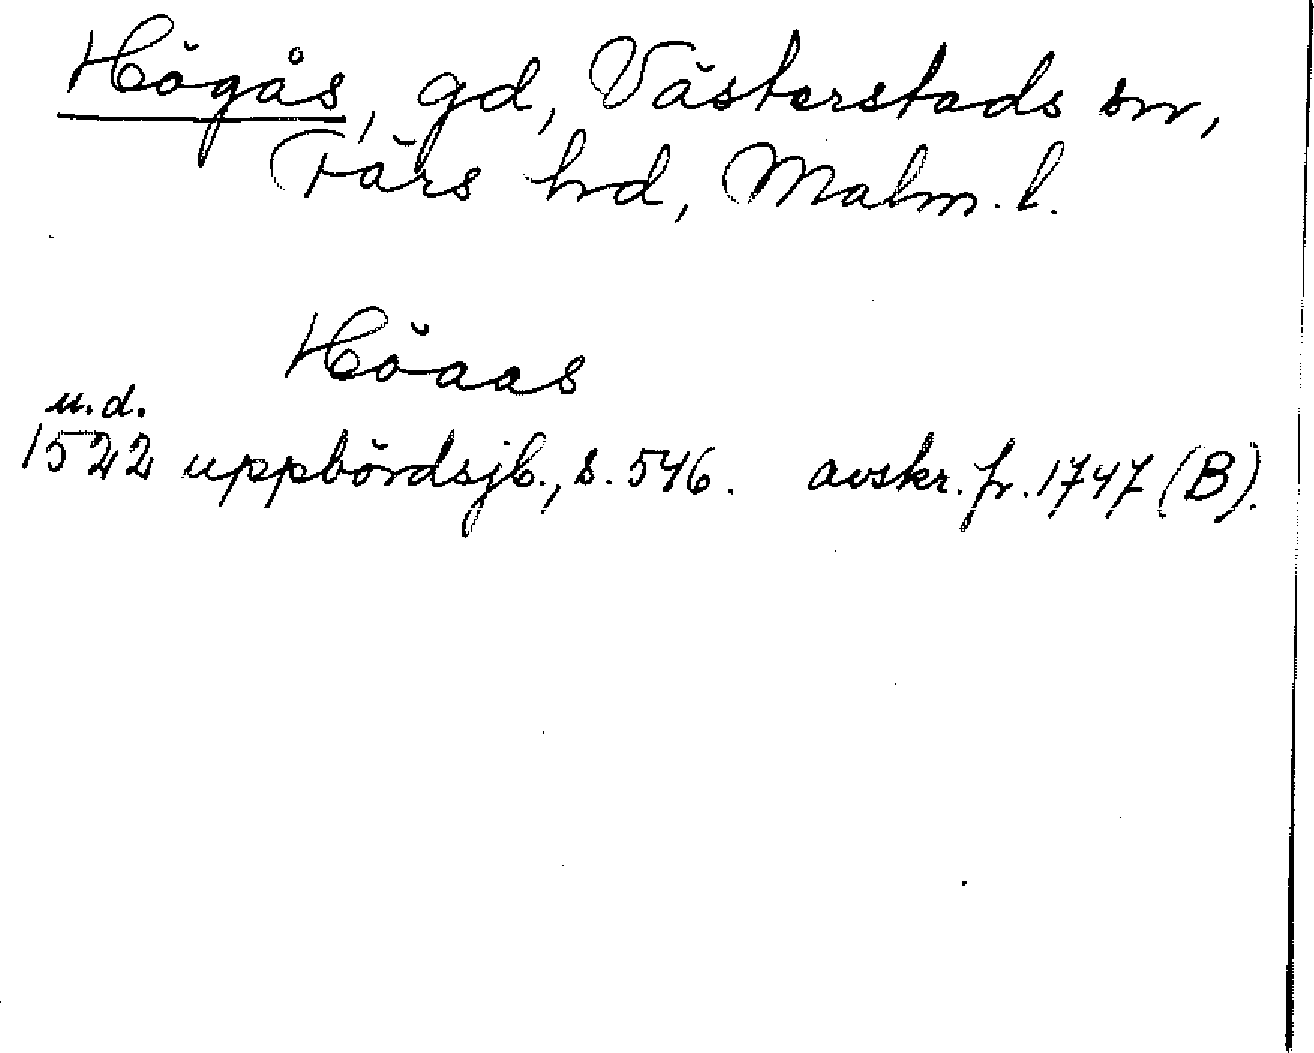 Högås, gd, Västerstads sn,
Färs hd, Malm. l.
Höaas
u.d.
1522 uppbördsjb., s. 546. avskr. fr. 1747 (B).